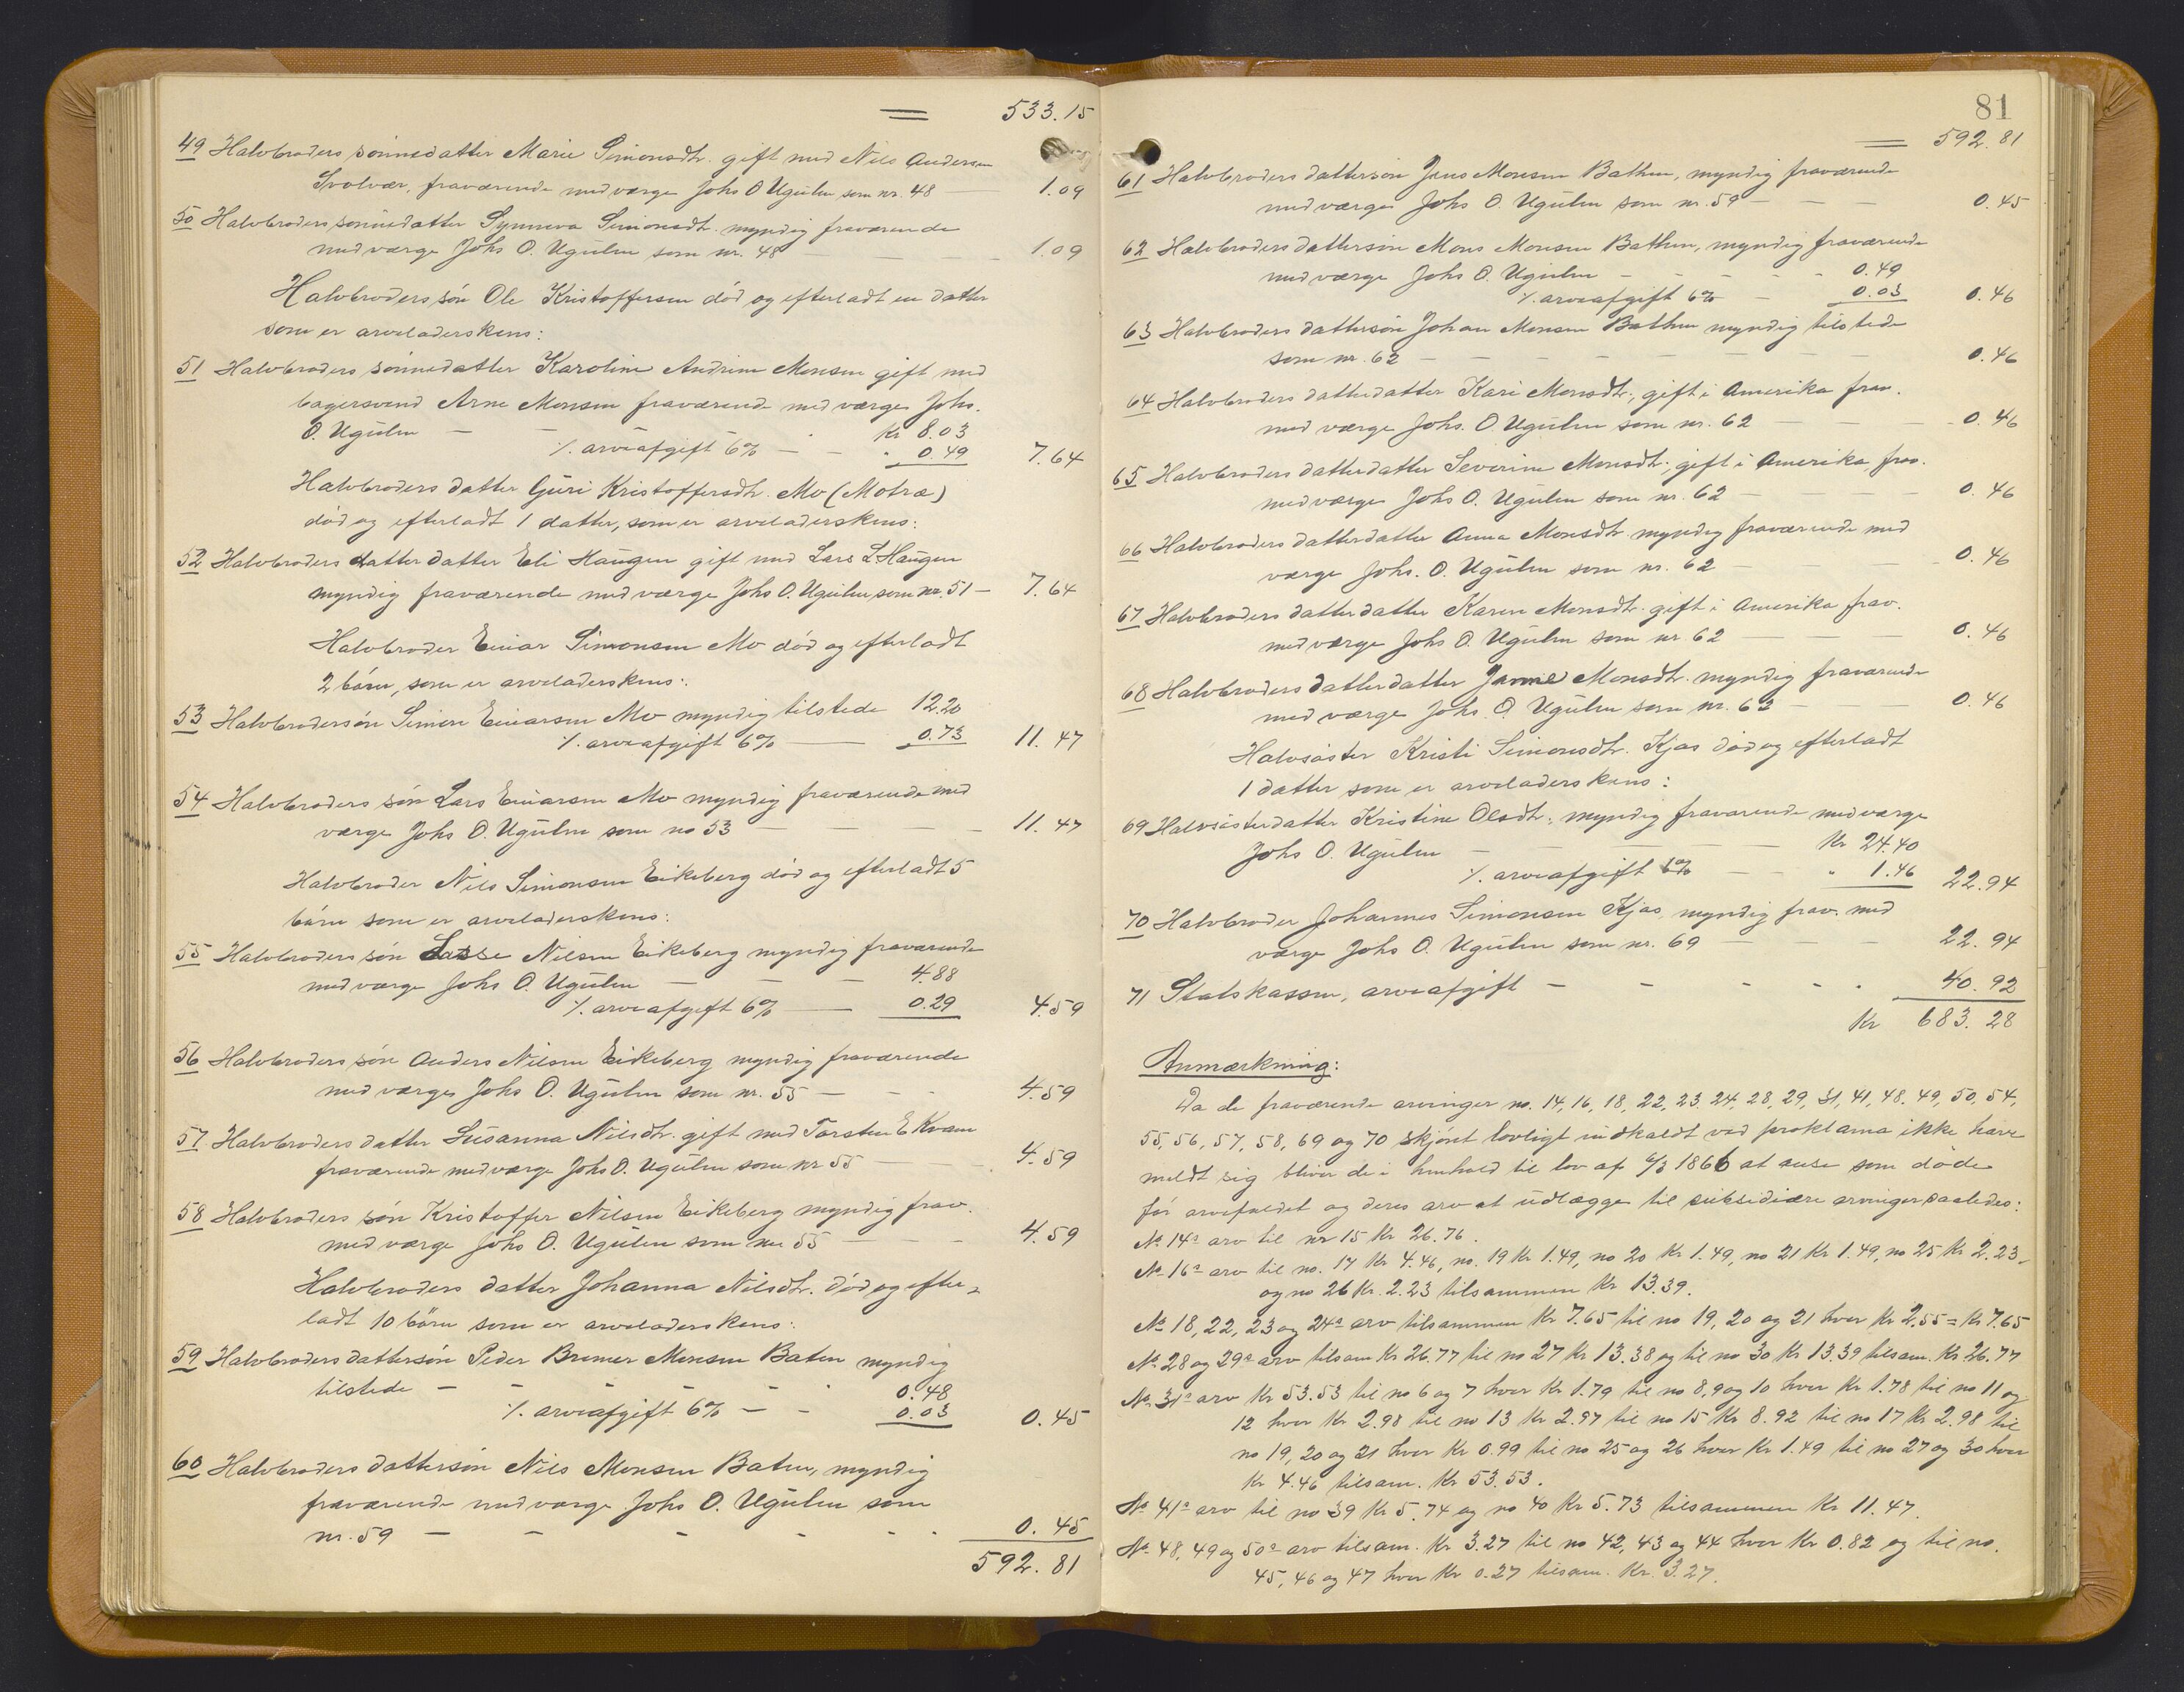 = 533.15
49 Halvbroders sønnedatter Marie Simonsdtr. gift med Nils Andersen
Svolvær, fraværende med værge Johs O Ugulen som nr. 48 — 1.09
50 Halvbroders sønnedatter Synneva Simonsdtr. myndig fraværende
med værge Johs O. Ugulen som nr. 48 — — — 1.09
Halvbroders søn Ole Kristoffersen død og efterladt en datter
som er arveladerskens:
51 Halvbroders sønnedatter Karoline Andrine Monsen gift med
bagersvend Arne Monsen fraværende med værge Johs.
O. Ugulen — — - Kr 8.03
⁒ arveafgift 6% — — " 0.49 7.64
Halvbroders datter Guri Kristoffersdtr. Mo (Motræ)
død og efterladt 1 datter, som er arveladerskens:
52 Halvbroders datter datter Eli Haugen gift med Lars L Haugen
myndig fraværende med værge Johs O. Ugulen som nr. 51 — 7.64
Halvbroder Einar Simonsen Mo død og efterladt
2 børn, som er arveladerskens:
53 Halvbrodersøn Simon Einarsen Mo myndig tilstede 12.20
⁒ arveafgift 6% — 0.73 11.47
54 Halvbroders søn Lars Einarsen Mo myndig fraværende med
værge Johs O. Ugulen som no 53 — — — 11.47
Halvbroder Nils Simonsen Eikeberg død og efterladt 5
børn som er arveladerskens:
55 Halvbroders søn Lasse Nilsen Eikeberg myndig fraværende
med værge Johs O. Ugulen — — — 4.88
⁒ arveafgift 6% — 0.29 4.59
56 Halvbroders søn Anders Nilsen Eikeberg myndig fraværende
med værge Johs O. Ugulen som nr. 55 — - - 4.59
57 Halvbroders datter Susanna Nilsdtr. gift med Torsten E Kvam
fraværende med værge Johs O. Ugulen som nr 55 — — 4.59
58 Halvbroders søn Kristoffer Nilsen Eikeberg myndig frav.
med værge Johs O. Ugulen som nr 55 — — — 4.59
Halvbroders datter Johanna Nilsdtr. død og efter-
ladt 10 børn som er arveladerskens:
59 Halvbroders dattersøn Peder Bremer Monsen Baten myndig
tilstede — - - - - 0.48
⁒ arveafgift 6% — - 0.03 0.45
60 Halvbroders dattersøn Nils Monsen Baten, myndig
fraværende med værge Johs O. Ugulen som
nr. 59 — - - - - 0.45
592.81
81
= 592.81
61 Halvbroders dattersøn Jens Monsen Bathen, myndig fraværende
med værge Johs O. Ugulen som nr. 59 — — — 0.45
62 Halvbroders dattersøn Mons Monsen Bathen, myndig fraværende
med værge Johs O. Ugulen - - - - 0.49
⁒ arveafgift 6% — 0.03 0.46
63 Halvbroders dattersøn Johan Monsen Bathen myndig tilstede
som nr. 62 — — — — — — 0.46
64 Halvbroders datterdatter Kari Monsdtr., gift i Amerika frav.
med værge Johs. O Ugulen som nr. 62 — — — 0.46
65 Halvbroders datterdatter Severine Monsdtr., gift i Amerika frav.
med værge Johs O. Ugulen som nr. 62 — — — 0.46
66 Halvbroders datterdatter Anna Monsdtr. myndig fraværende med
værge Johs. O. Ugulen som nr. 62 — — — 0.46
67 Halvbroders datterdatter Karen Monsdtr. gift i Amerika frav.
med værge Johs O. Ugulen som nr 62 — — — 0.46
68 Halvbroders datterdatter Janne Monsdtr. myndig fraværende
med værge Johs. O. Ugulen som nr. 63 — — 0.46
Halvsøster Kristi Simonsdtr. Kjos død og efterladt
1 datter som er arveladerskens:
69 Halvsøsterdatter Kristine Olsdtr. myndig fraværende med værge
Johs O. Ugulen — — — — Kr 24.40
⁒ arveafgift 6% — — " 1.46 22.94
70 Halvbroder Johannes Simonsen Kjos, myndig frav. med
værge Johs O. Ugulen som nr. 69 — — — 22.94
71 Statskassen, arveafgift — - - - - 40.92
Kr 683.28
Anmærkning:
Da de fraværende arvinger no. 14, 16, 18, 22, 23, 24, 28, 29, 31, 41, 48, 49, 50, 54,
55, 56, 57, 58, 69 og 70 skjønt lovligt indkaldt ved proklama ikke have
meldt sig bliver de i henhold til lov af 6/3 1866 at anse som døde
før arvefaldet og deres arv at udlægge til subsidiære arvinger saaledes:
No 14s arv til nr 15 Kr 26.76.
No 16s arv til no. 17 Kr 4.46, no. 19 Kr 1.49, no 20 Kr 1.49, no 21 Kr 1.49, no 25 Kr 2.23
og no 26 Kr. 2.23 tilsammen Kr 13.39.
No 18, 22, 23 og 24s arv tilsammen Kr 7.65 til no 19, 20 og 21 hver Kr 2.55 = Kr 7.65
No. 28 og 29s arv tilsam Kr 26.77 til no 27 Kr 13.38 og til no 30 Kr 13.39 tilsam. Kr. 26.77
No. 31s arv Kr 53.53 til no 6 og 7 hver Kr 1.79 til no 8, 9 og 10 hver Kr 1.78 til no 11 og
12 hver Kr 2.98 til no 13 Kr 2.97 til no 15 Kr 8.92 til no 17 Kr 2.98 til
no 19, 20 og 21 hver Kr 0.99 til no 25 og 26 hver Kr 1.49 til no 27 og 30 hver
Kr 4.46 tilsam. Kr 53.53.
No 41s arv til no 39 Kr 5.74 og no 40 Kr 5.73 tilsammen Kr 11.47.
No. 48, 49 og 50s arv tilsam. Kr 3.27 til no 42, 43 og 44 hver Kr 0.82 og til no.
45, 46 og 47 hver Kr 0.27 tilsam. Kr. 3.27.